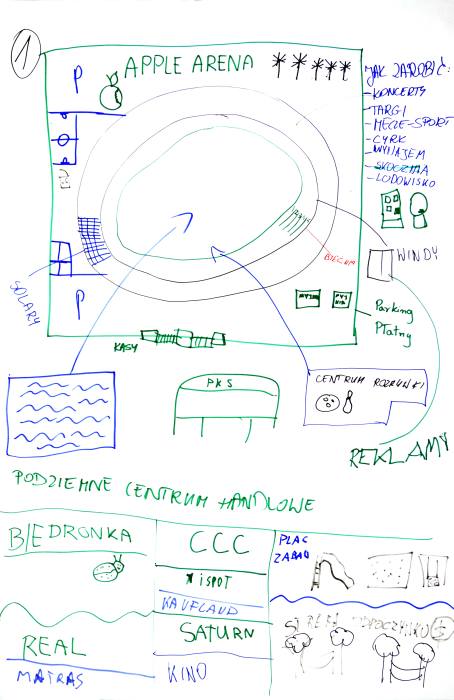 1
P
APPLE ARENA
JAK ZAROBIĆ:
- KONCERTY
- TARGI
- MECZE-SPORT
- CYRK
- WYNAJEM
- SKOCZNIA
- LODOWISKO
WINDY
BIEŻNIA
SOLARY
P
Parking
Płatny
KASY
PKS
CENTRUM ROZRYWKI
REKLAMY
PODZIEMNE CENTRUM HANDLOWE
BIEDRONKA
CCC
PLAC
ZABAW
iSPOT
KAUFLAUD
SATURN
REAL
MATRAS
KINO